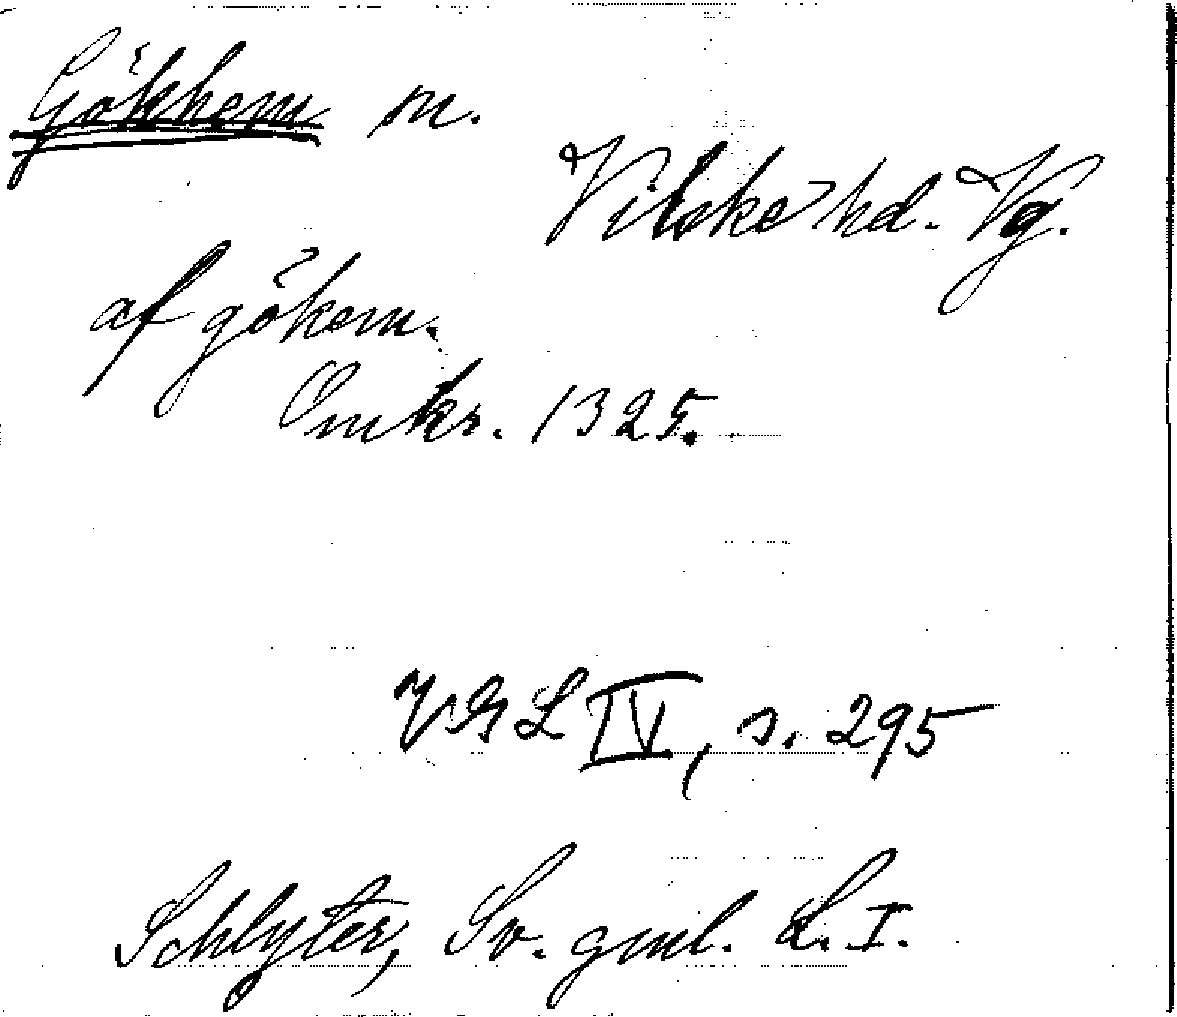 Gökhem m.
Vilske hd. Vg.
af gökem.
Omkr. 1325.
VGL IV, s. 295
Schlyter, Sv. gml. L. I.